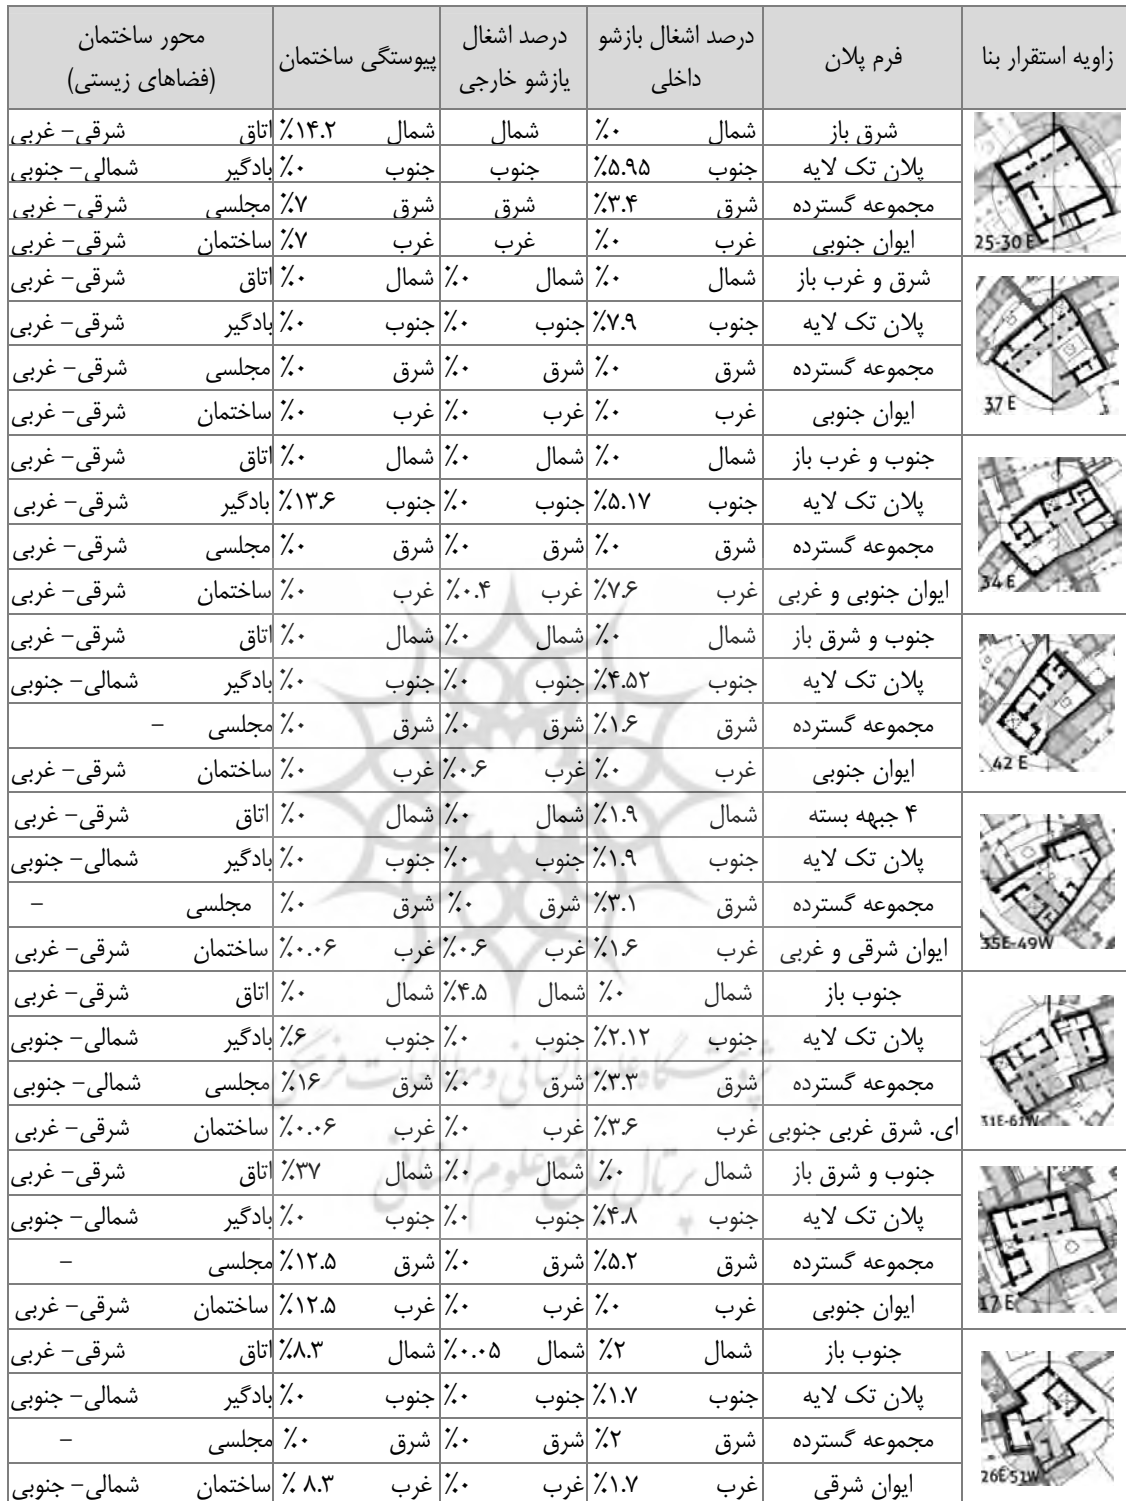 زاویه استقرار بنا فرم پلان درصد اشغال بازشو داخلی درصد اشغال یازشو خارجی پیوستگی ساختمان محور ساختمان (فضاهای زیستی)
شرق باز شمال ۰٪ شمال شمال ۱۴.۲٪ اتاق شرقی– غربی
پلان تک لایه جنوب ۵.۹۵٪ جنوب جنوب ۰٪ بادگیر شمالی– جنوبی
مجموعه گسترده شرق ۳.۴٪ شرق شرق ۷٪ مجلسی شرقی– غربی
25-30 E ایوان جنوبی غرب ۰٪ غرب غرب ۷٪ ساختمان شرقی– غربی
شرق و غرب باز شمال ۰٪ شمال ۰٪ شمال ۰٪ اتاق شرقی– غربی
پلان تک لایه جنوب ۷.۹٪ جنوب ۰٪ جنوب ۰٪ بادگیر شرقی– غربی
مجموعه گسترده شرق ۰٪ شرق ۰٪ شرق ۰٪ مجلسی شرقی– غربی
37 E ایوان جنوبی غرب ۰٪ غرب ۰٪ غرب ۰٪ ساختمان شرقی– غربی
جنوب و غرب باز شمال ۰٪ شمال ۰٪ شمال ۰٪ اتاق شرقی– غربی
پلان تک لایه جنوب ۵.۱۷٪ جنوب ۰٪ جنوب ۱۳.۶٪ بادگیر شرقی– غربی
مجموعه گسترده شرق ۰٪ شرق ۰٪ شرق ۰٪ مجلسی شرقی– غربی
34 E ایوان جنوبی و غربی غرب ۷.۶٪ غرب ۰.۴٪ غرب ۰٪ ساختمان شرقی– غربی
جنوب و شرق باز شمال ۰٪ شمال ۰٪ شمال ۰٪ اتاق شرقی– غربی
پلان تک لایه جنوب ۴.۵۲٪ جنوب ۰٪ جنوب ۰٪ بادگیر شمالی– جنوبی
مجموعه گسترده شرق ۱.۶٪ شرق ۰٪ شرق ۰٪ مجلسی –
42 E ایوان جنوبی غرب ۰٪ غرب ۰.۶٪ غرب ۰٪ ساختمان شرقی– غربی
۴ جبهه بسته شمال ۱.۹٪ شمال ۰٪ شمال ۰٪ اتاق شرقی– غربی
پلان تک لایه جنوب ۱.۹٪ جنوب ۰٪ جنوب ۰٪ بادگیر شمالی– جنوبی
مجموعه گسترده شرق ۳.۱٪ شرق ۰٪ شرق ۰٪ مجلسی –
35E-49W ایوان شرقی و غربی غرب ۱.۶٪ غرب ۰.۶٪ غرب ۰.۰۶٪ ساختمان شرقی– غربی
جنوب باز شمال ۰٪ شمال ۴.۵٪ شمال ۰٪ اتاق شرقی– غربی
پلان تک لایه جنوب ۲.۱۲٪ جنوب ۰٪ جنوب ۶٪ بادگیر شمالی– جنوبی
مجموعه گسترده شرق ۳.۳٪ شرق ۰٪ شرق ۱۶٪ مجلسی شمالی– جنوبی
31E-61W ای. شرق غربی جنوبی غرب ۳.۶٪ غرب ۰٪ غرب ۰.۰۶٪ ساختمان شرقی– غربی
جنوب و شرق باز شمال ۰٪ شمال ۰٪ شمال ۳۷٪ اتاق شرقی– غربی
پلان تک لایه جنوب ۴.۸٪ جنوب ۰٪ جنوب ۰٪ بادگیر شمالی– جنوبی
مجموعه گسترده شرق ۵.۲٪ شرق ۰٪ شرق ۱۲.۵٪ مجلسی –
17 E ایوان جنوبی غرب ۰٪ غرب ۰٪ غرب ۱۲.۵٪ ساختمان شرقی– غربی
جنوب باز شمال ۲٪ شمال ۰.۰۵٪ شمال ۸.۳٪ اتاق شرقی– غربی
پلان تک لایه جنوب ۱.۷٪ جنوب ۰٪ جنوب ۰٪ بادگیر شمالی– جنوبی
مجموعه گسترده شرق ۲٪ شرق ۰٪ شرق ۰٪ مجلسی –
26E 51W ایوان شرقی غرب ۱.۷٪ غرب ۰٪ غرب ۸.۳ ٪ ساختمان شمالی– جنوبی
پژوهشگاه علوم انسانی و مطالعات فرهنگی
پرتال جامع علوم انسانی